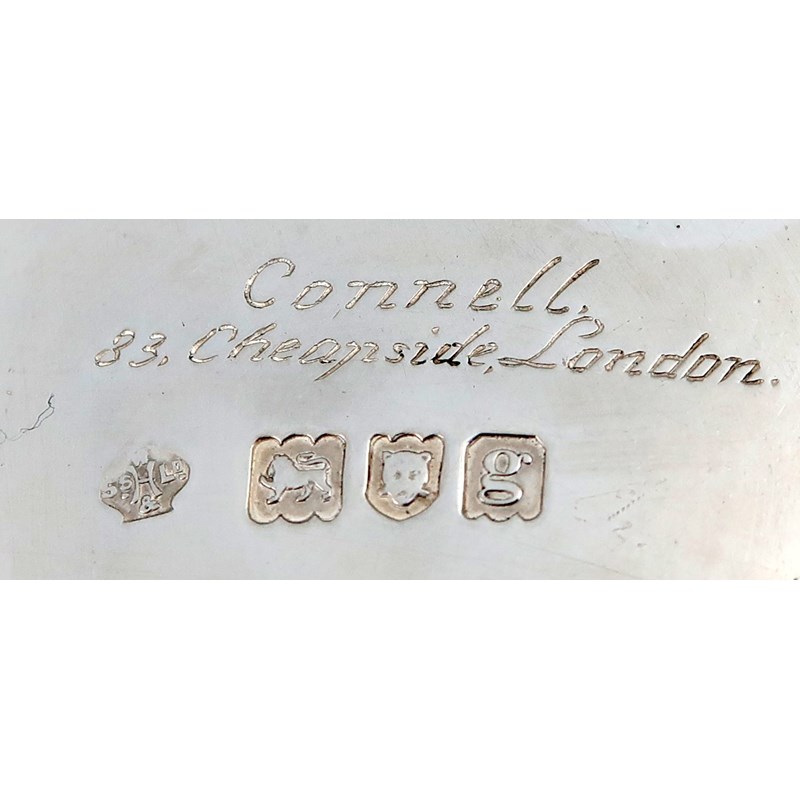 Connell,
83, Cheapside, London.
g